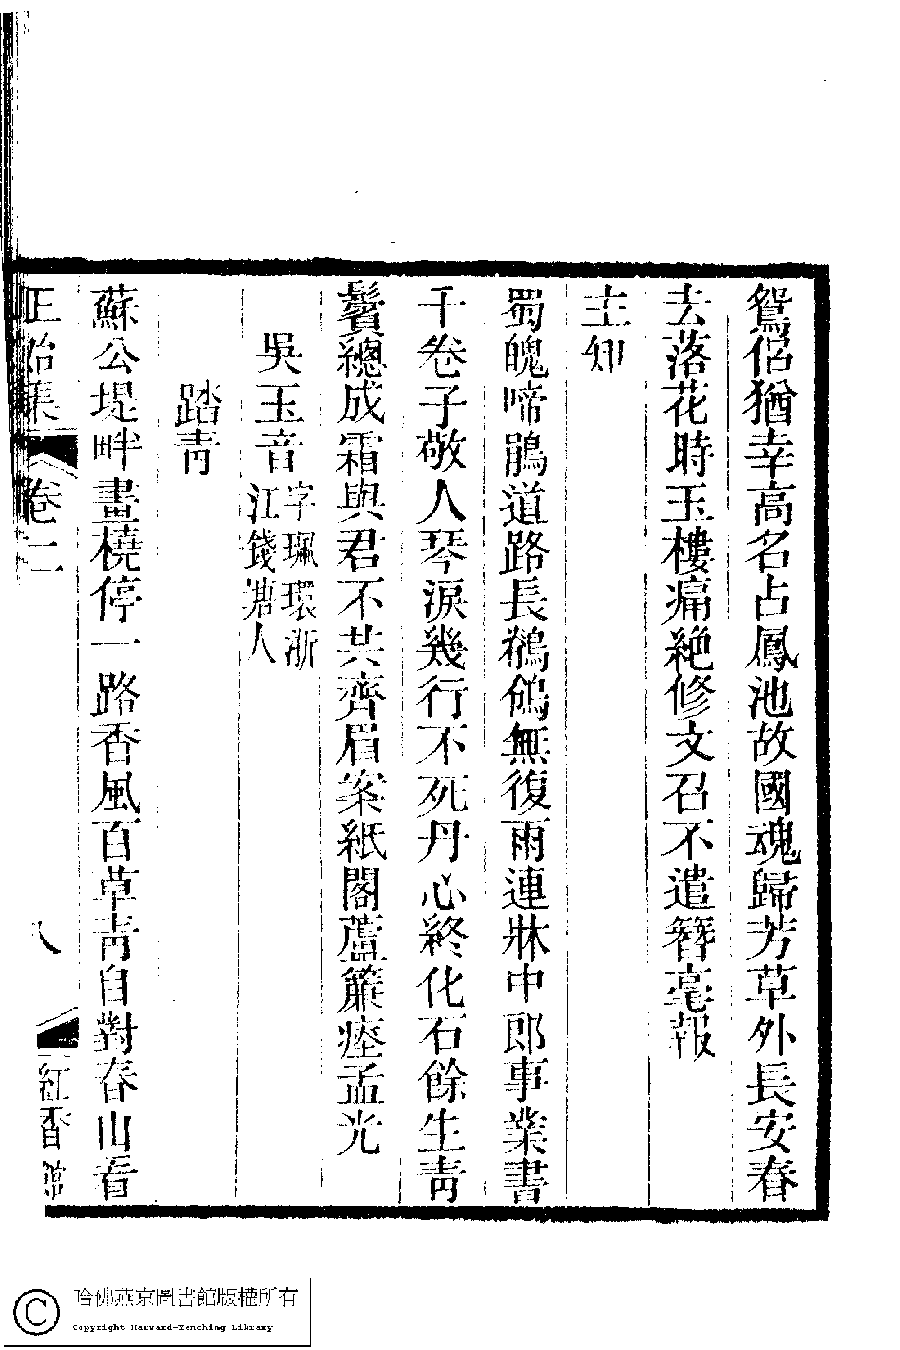 鴛侶猶幸高名占鳳池故國魂歸芳草外長安春
去落花時玉樓痛絶修文召不遣簪毫報
主知
蜀魄啼鵑道路長鶺鴒無復雨連牀中郎事業書
千卷子敬人琴淚幾行不死丹心終化石餘生靑
鬢總成霜與君不共齊眉案紙閣蘆簾瘞孟光
吳玉音字珮環浙
江錢塘人
踏靑
蘇公堤畔畫橈停一路香風百草靑自對春山看
正始集
卷二
八
紅香館
哈佛燕京圖書館版權所有
Copyright Harvard-Yenching Library